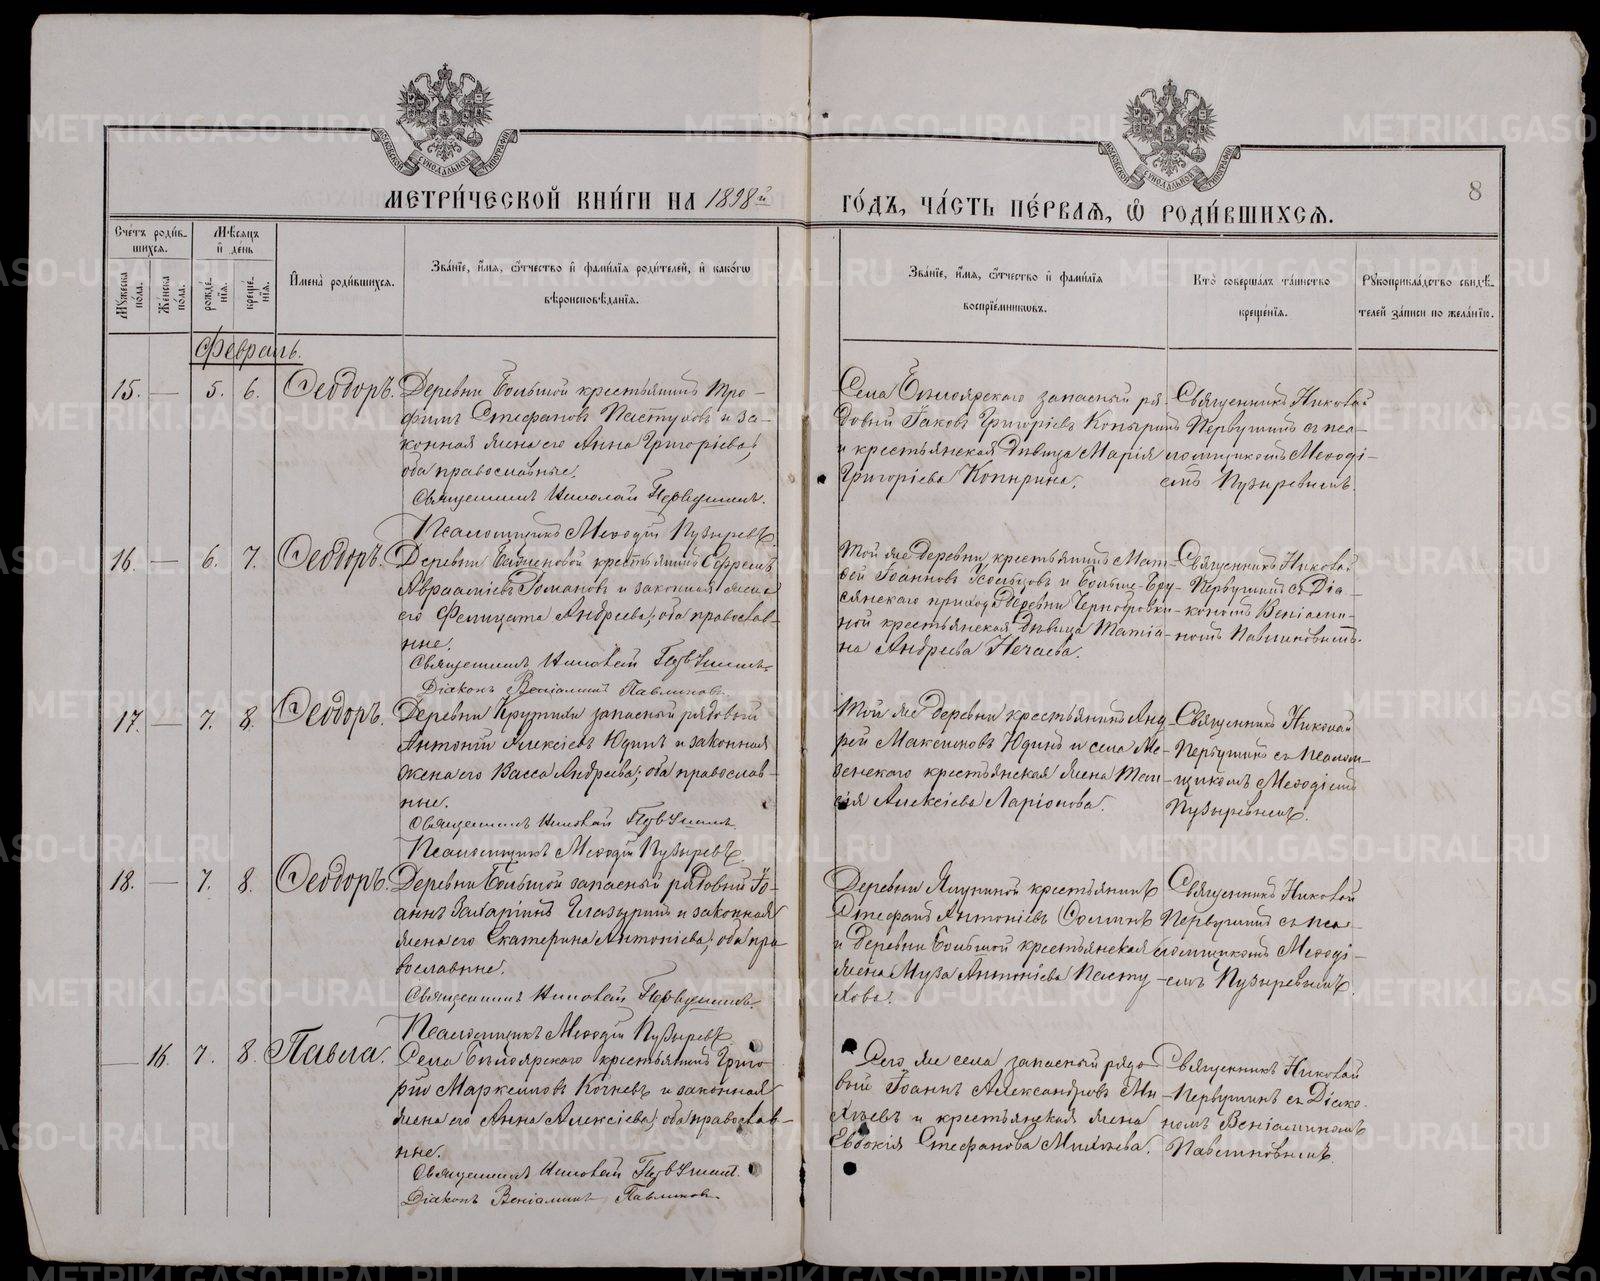 МЕТРИ́ЧЕСКОЙ КНИ́ГИ НА 1898й
ГО́ДЪ, ЧА́СТЬ ПЕ́РВАѦ, Ѡ҆ РОДИ́ВШИХСѦ.
8
Счётъ роди́в-
шихсѧ.
Мꙋ́жеска по́ла.
Же́нска по́ла.
Мѣ́сѧцъ
и҆ де́нь
рожде́-
нїѧ.
креще́-
нїѧ.
И҆мена̀ роди́вшихсѧ.
Зва́нїе, и҆́мѧ, ѻ҆́тчество и҆ фами́лїѧ роди́телей, и҆ како́гѡ
вѣроисповѣ́данїѧ.
Зва́нїе, и҆́мѧ, ѻ҆́тчество и҆ фами́лїѧ
воспрїе́мниковъ.
Кто̀ соверша́лъ та́инство
креще́нїѧ.
Рꙋкоприкла́дство свидѣ́-
телей за́писи по жела́нїю.
Февраль.
15. — 5. 6. Ѳеодоръ.
Деревни Большой крестьянинъ Тро-
фимъ Стефановъ Пастуховъ и за-
конная жена его Анна Григорiева;
оба православные.
Священникъ Николай Первушинъ.
Псаломщикъ Меѳодiй Пузыревъ.
Села Бѣлоярскаго запасный ря-
довый Iаковъ Григорiевъ Копыринъ
и крестьянская дѣвица Марiя
Григорiева Копырина.
Священникъ Николай
Первушинъ съ пса-
ломщикомъ Меѳодi-
емъ Пузыревымъ.
16. — 6. 7. Ѳеодоръ.
Деревни крестьянинъ Ефремъ
Авраамiевъ Романовъ и законная жена
его Фелицата Андреева; оба православ-
ные.
Священникъ Николай Первушинъ.
Дiаконъ Венiаминъ Павлиновъ.
Той же деревни крестьянинъ Мат-
ѳей Iоанновъ и Больше-Бру-
сянскаго прихода деревни
ной крестьянская дѣвица Татiа-
на Андреева Нечаева.
Священникъ Николай
Первушинъ съ Дiа-
кономъ Венiами-
номъ Павлиновымъ.
17. — 7. 8. Ѳеодоръ.
Деревни Крутихи запасный рядовый
Антонiй Алексiевъ Юдинъ и законная
жена его Васса Андреева; оба православ-
ные.
Священникъ Николай Первушинъ.
Псаломщикъ Меѳодiй Пузыревъ.
Той же деревни крестьянинъ Анд-
рей Максимовъ Юдинъ и села Ме-
зенскаго крестьянская жена Таи-
сiя Алексiева Ларiонова.
Священникъ Николай
Первушинъ съ псалом-
щикомъ Меѳодiемъ
Пузыревымъ.
18. — 7. 8. Ѳеодоръ.
Деревни Большой запасный рядовый Iо-
аннъ Захарiинъ Глазыринъ и законная
жена его Екатерина Антонiева; оба пра-
вославные.
Священникъ Николай Первушинъ.
Псаломщикъ Меѳодiй Пузыревъ.
Деревни крестьянинъ
Стефанъ Антонiевъ
и деревни Большой крестьянская
жена Муза Антонiева Пасту-
хова.
Священникъ Николай
Первушинъ съ пса-
ломщикомъ Меѳодi-
емъ Пузыревымъ.
— 16. 7. 8. Павла.
Села Бѣлоярскаго крестьянинъ Григо-
рiй Маркелловъ Кочневъ и законная
жена его Анна Алексiева; оба православ-
ные.
Священникъ Николай Первушинъ.
Дiаконъ Венiаминъ Павлиновъ.
Сего же села запасный рядо-
вый Iоаннъ Александровъ Ми-
хѣевъ и крестьянская жена
Евдокiя Стефанова Михѣева.
Священникъ Николай
Первушинъ съ Дiако-
номъ Венiаминомъ
Павлиновымъ.
METRIKI.GASO-URAL.RU